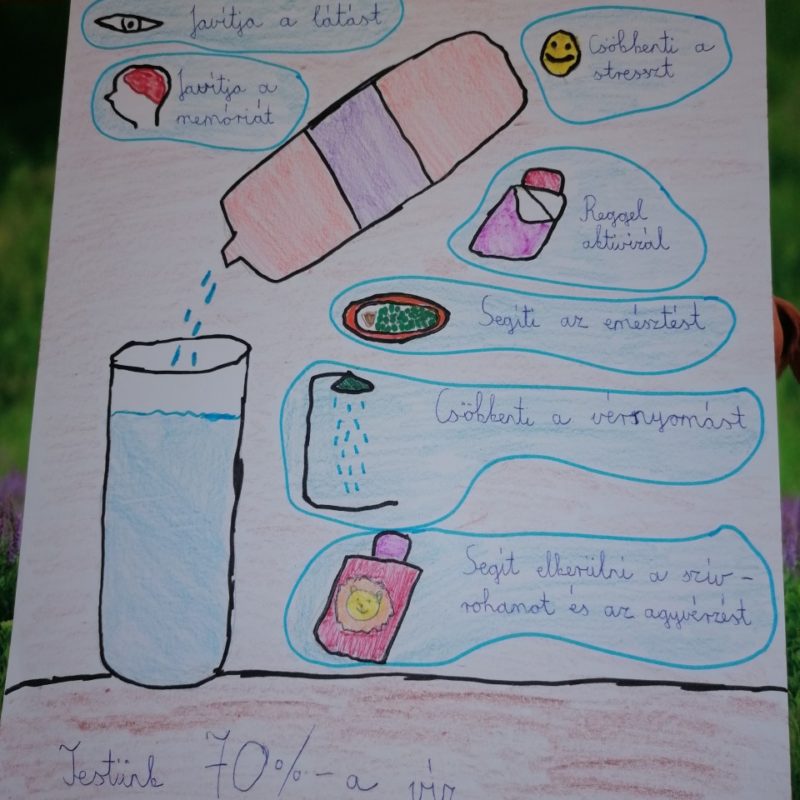 Javítja a látást
Javítja a
memóriát
Csökkenti a
stresszt
Reggel
aktivizál
Segíti az emésztést
Csökkenti a vérnyomást
Segít elkerülni a szív-
rohanot és az agyvérzést
Testünk 70%-a víz